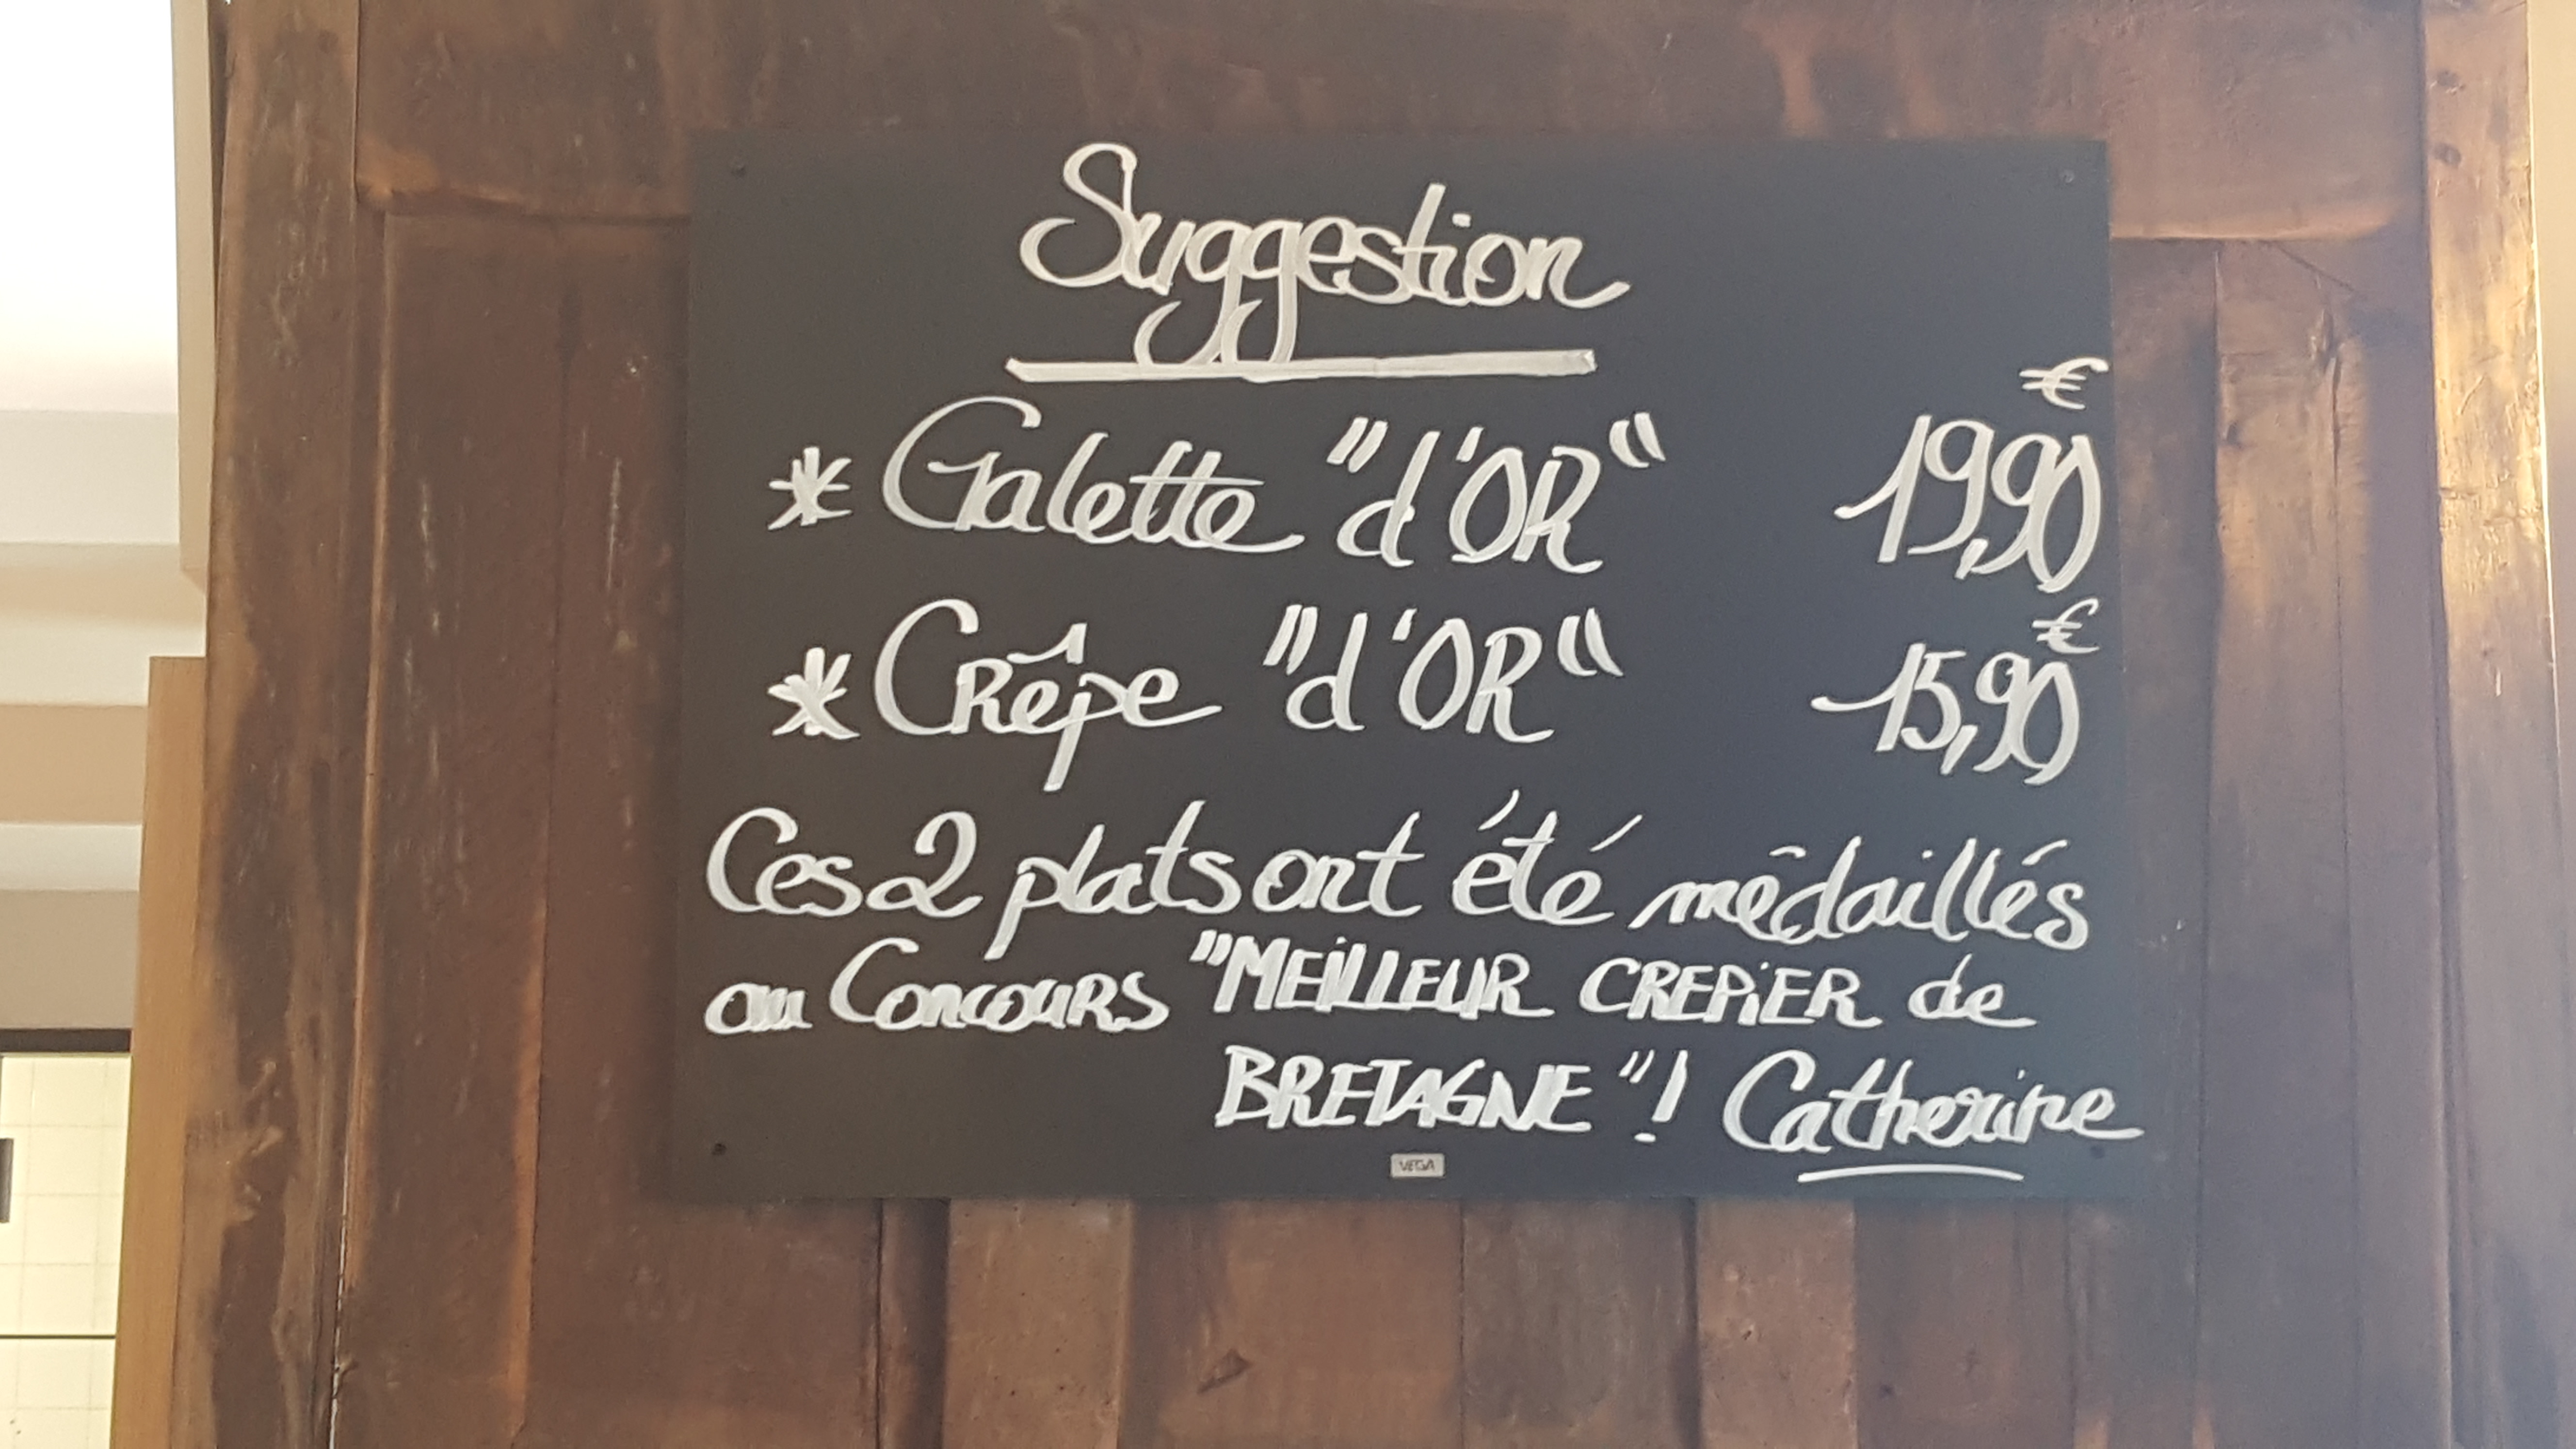 Suggestion
* Galette "d'OR" 19,90 €
* Crêpe "d'OR" 15,90 €
Ces 2 plats ont été médaillés
au Concours "MEILLEUR CREPIER de
BRETAGNE"! Catherine
VEGA